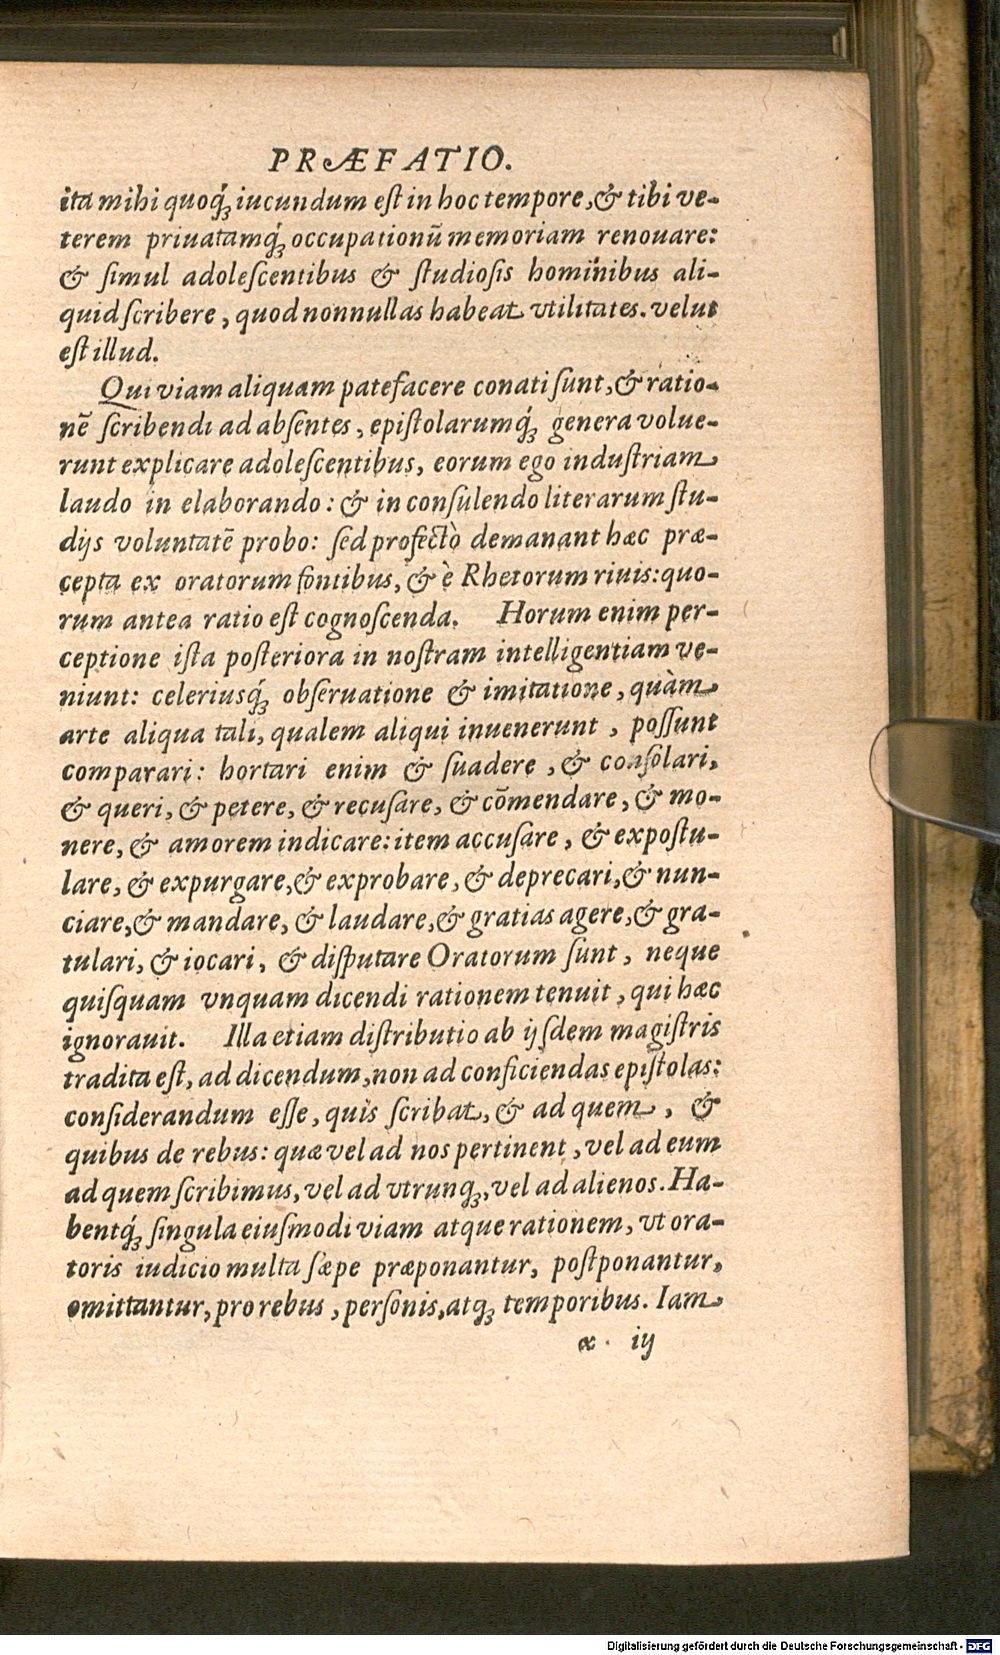 PRÆFATIO.
ita mihi quoq́ꝫ iucundum eſt in hoc tempore, & tibi ve-
terem priuatamq́ꝫ occupationū memoriam renouare:
& ſimul adoleſcentibus & ſtudioſis hominibus ali-
quid ſcribere, quod nonnullas habeat vtilitates. velut
eſt illud.
Qui viam aliquam patefacere conati ſunt, & ratio-
nē ſcribendi ad abſentes, epiſtolarumq́ꝫ genera volue-
runt explicare adoleſcentibus, eorum ego induſtriam
laudo in elaborando: & in conſulendo literarum ſtu-
dijs voluntatē probo: ſed profectò demanant hæc præ-
cepta ex oratorum fontibus, & è Rhetorum riuis: quo-
rum antea ratio eſt cognoſcenda. Horum enim per-
ceptione iſta poſteriora in noſtram intelligentiam ve-
niunt: celeriusq́ꝫ obſeruatione & imitatione, quàm
arte aliqua tali, qualem aliqui inuenerunt, poſſunt
comparari: hortari enim & ſuadere, & conſolari,
& queri, & petere, & recuſare, & cōmendare, & mo-
nere, & amorem indicare: item accuſare, & expoſtu-
lare, & expurgare, & exprobare, & deprecari, & nun-
ciare, & mandare, & laudare, & gratias agere, & gra-
tulari, & iocari, & diſputare Oratorum ſunt, neque
quiſquam vnquam dicendi rationem tenuit, qui hæc
ignorauit. Illa etiam diſtributio ab ijſdem magiſtris
tradita eſt, ad dicendum, non ad conficiendas epiſtolas:
conſiderandum eſſe, quis ſcribat, & ad quem, &
quibus de rebus: quæ vel ad nos pertinent, vel ad eum
ad quem ſcribimus, vel ad vtrunqꝫ, vel ad alienos. Ha-
bentq́ꝫ ſingula eiuſmodi viam atque rationem, vt ora-
toris iudicio multa ſæpe præponantur, poſtponantur,
omittantur, pro rebus, perſonis, atqꝫ temporibus. Iam
α. iij
Digitalisierung gefördert durch die Deutsche Forschungsgemeinschaft - DFG